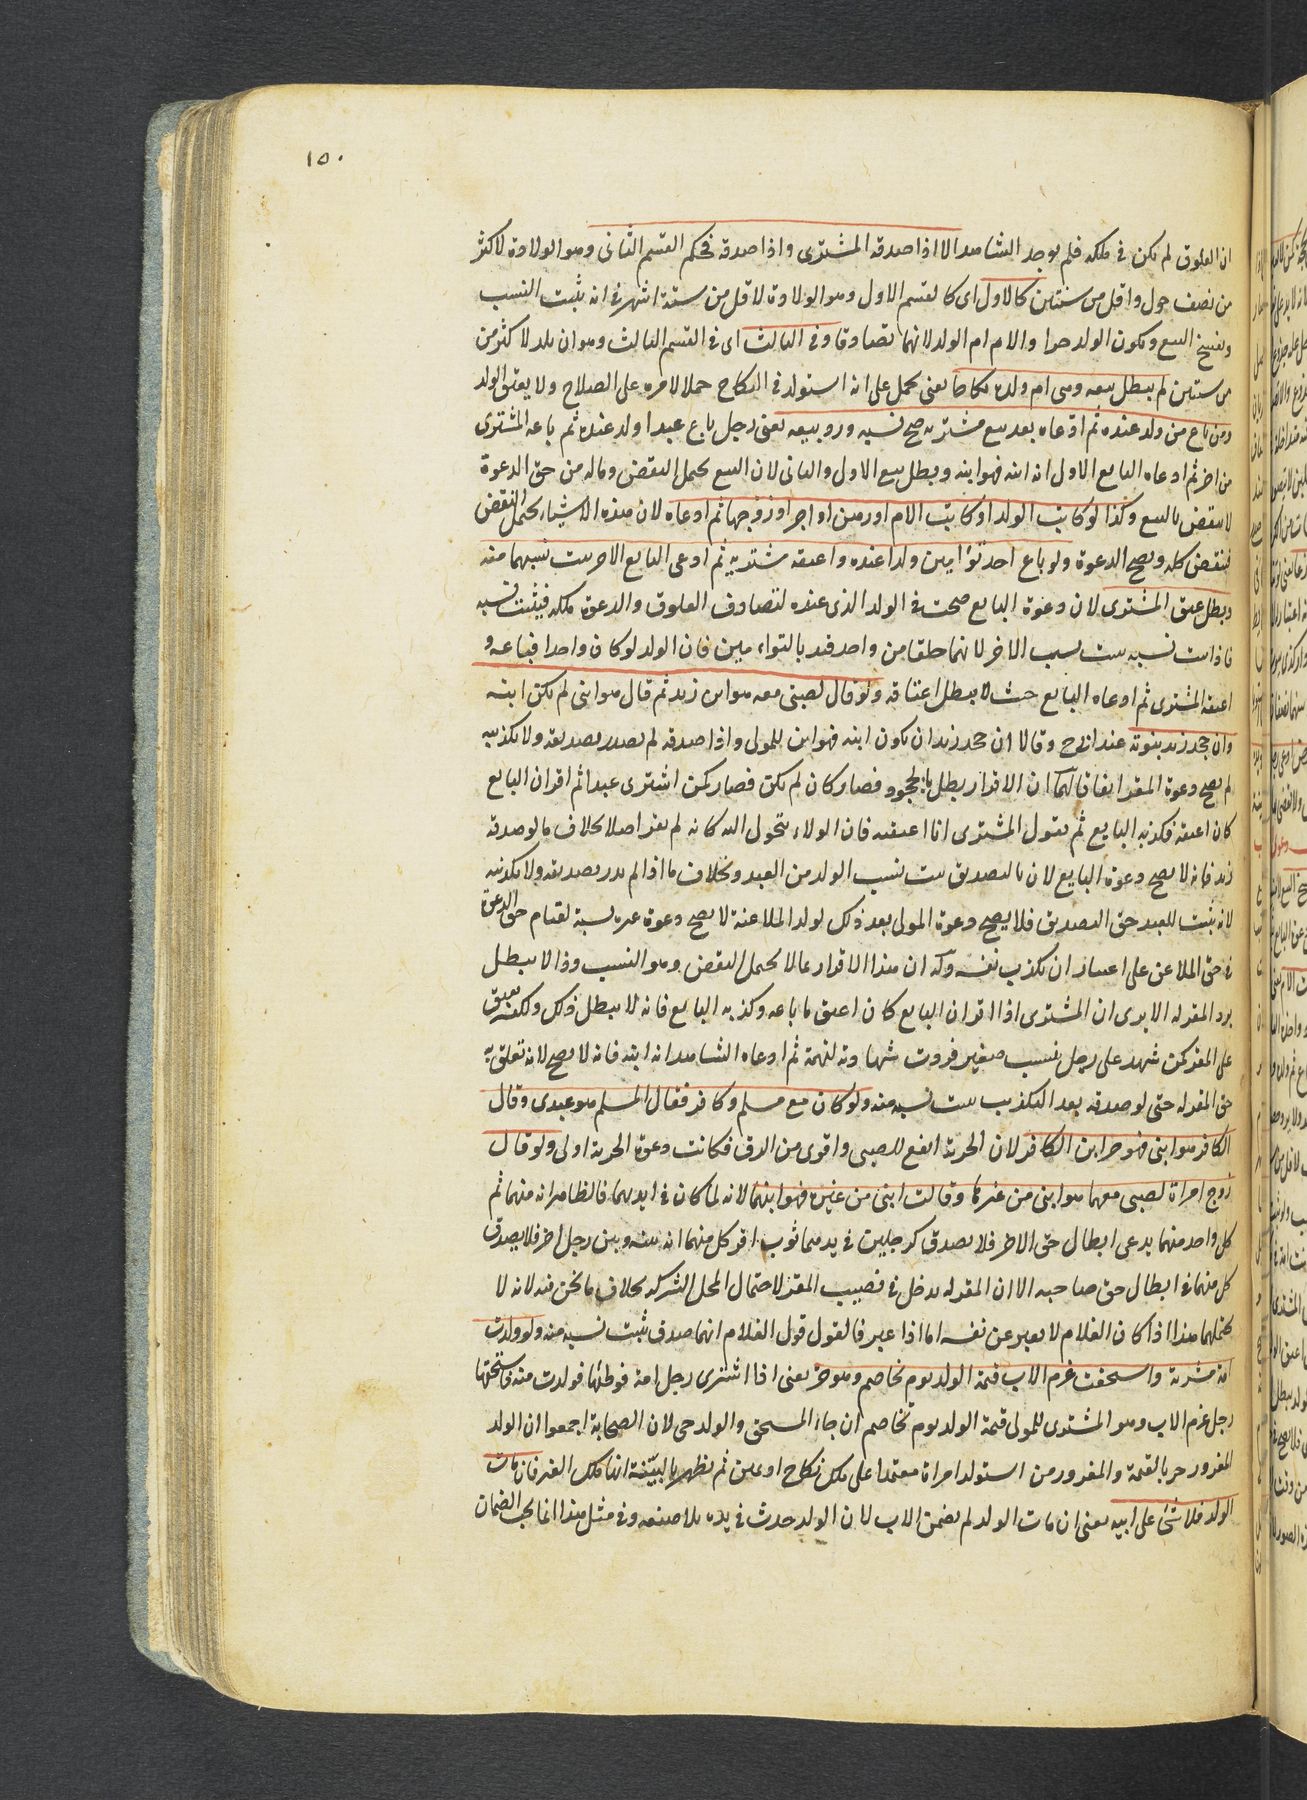 ١٥٠
ان العلوق لم يكن في ملكه فلم يوجد الشاهد الا اذا صدقه المشترى واذا صدقه فحكم القسم الثانى وهو الولادة لاكثر
من نصف حول واقل من سنتين كالاول اى كالقسم الاول وهو الولادة لاقل من ستة اشهر فى انه يثبت النسب
ويفسخ البيع ويكون الولد حرا والام ام الولد لانهما تصادقا وفى الثالث اى فى القسم الثالث وهو ان تلد لاكثر من
من سنتين لم يبطل بيعه وهى ام ولده نكاحا يعنى يحمل على انه استولد فى النكاح حملا لامره على الصلاح ولا يعتق الولد
ومن باع من ولد عنده ثم ادعاه بعد بيع مشتريه صح نسبه ورد بيعه يعنى رجل باع عبدا ولد عنده ثم باعه المشترى
من اخر ثم ادعاه البايع الاول انه ابنه فهو ابنه ويطل بيع الاول والثانى لان البيع يحتمل النقض وماله من حق الدعوة
لا ينقض بالبيع وكذا لو كاتب الولد او كاتب الام اورهن او اجر او زوجها ثم ادعاه لان هذه الاشياء يحتمل النقض
فينقض كله ويصح الدعوة ولو باع احد توامين ولدا عنده واعتقه مشتريه ثم ادعى البايع الاخر ثبت نسبهما منه
وبطل عتق المشترى لان دعوة البايع صحت فى الولد الذى عنده لتصادف العلوق والدعوة ملكه فيثبت نسبه
فاذا ثبت نسبه ثبت نسب الاخر لانهما خلقا من واحد قيد بالتواءمين فان الولد لو كان واحدا فباعه و
اعتقه المشترى ثم ادعاه البايع حيث لا يبطل اعتاقه ولو قال لصبى معه هو ابن زيد ثم قال هو ابنى لم يكن ابنه
وان جحد زيد بنوته عند ابى ح وقالا ان جحد زيد ان يكون ابنه فهو ابن للمولى واذا صدقه لم يصدر تصديقه ولا تكذيبه
لم يصح دعوة المقر اتفاقا لهما ان الاقرار بطل بالجحود فصار كان لم يكن فصار كمن اشترى عبدا ثم اقر ان البايع
كان اعتقه فكذبه البايع ثم يقول المشترى انا اعتقه فان الولاء يتحول اليه كانه لم يقر اصلا بخلاف ما لو صدقه
زيد فانه لا يصح دعوة البايع لان بالتصديق ثبت نسب الولد من العبد وبخلاف ما اذا لم يدر تصديقه ولا تكذيبه
لانه يثبت للعبد حق التصديق فلا يصح دعوة المولى بعد ذلك لولد الملاعنة لا يصح دعوة غيره نسبه لقيام حق الدعوة
فى حق الملاعن على اعتبار ان يكذب نفسه وله ان هذا الاقرار بما لا يحتمل النقض وهو النسب وذا لا يبطل
برد المقر له الا يرى ان المشترى اذا اقر ان البايع كان اعتق ما باعه وكذبه البايع فانه لا يبطل ذلك ولكنه يعتق
على المقر كمن شهد على رجل بنسب صغير فردت شهادته لتهمة ثم ادعاه الشاهد انه ابنه فانه لا يصح لانه تعلق به
حق المقر له حتى لو صدقه بعد التكذيب ثبت نسبه منه ولو كان مع مسلم وكافر فقال المسلم هو عبدى وقال
الكافر هو ابنى فهو حر ابن الكافر لان الحرية انفع للصبى واقوى من الرق فكانت دعوة الحرية اولى ولو قال
زوج امراة لصبى معهما هو ابنى من غيرها وقالت ابنى من غيره فهو ابنهما لانه لما كان فى ايديهما فالظاهر انه منهما ثم
كل واحد منهما يدعى ابطال حق الاخر فلا يصدق كرجلين فى يدهما ثوب اقر كل منهما انه بينه وبين رجل اخر فلا يصدق
كل منهما فى ابطال حق صاحبه الا ان المقر له يدخل فى نصيب المقر لاحتمال المحل الشركة بخلاف ما نحن فيه لانه لا
يحتملهما هذا اذا كان الغلام لا يعبر عن نفسه اما اذا عبر فالقول قول الغلام ايهما صدق يثبت نسبه منه ولو ولدت
امة مشترية واستحقت غرم الاب قيمة الولد يوم تخاصم وهو حر يعنى اذا اشترى رجل امة فوطئها فولدت منه فاستحقها
رجل غرم الاب وهو المشترى للمولى قيمة الولد يوم تخاصم ان جاء المستحق والولد حى لان الصحابة اجمعوا ان الولد
المغرور حر بالقيمة والمغرور من استولد امراة معتمدا على ملك نكاح او يمين ثم يظهر بالبينة انها ملك الغير فان مات
الولد فلا شئ على ابيه يعنى ان مات الولد لم يضمن الاب لان الولد حدث فى يده بلا صنعه وفى مثل هذا انما يجب الضمان